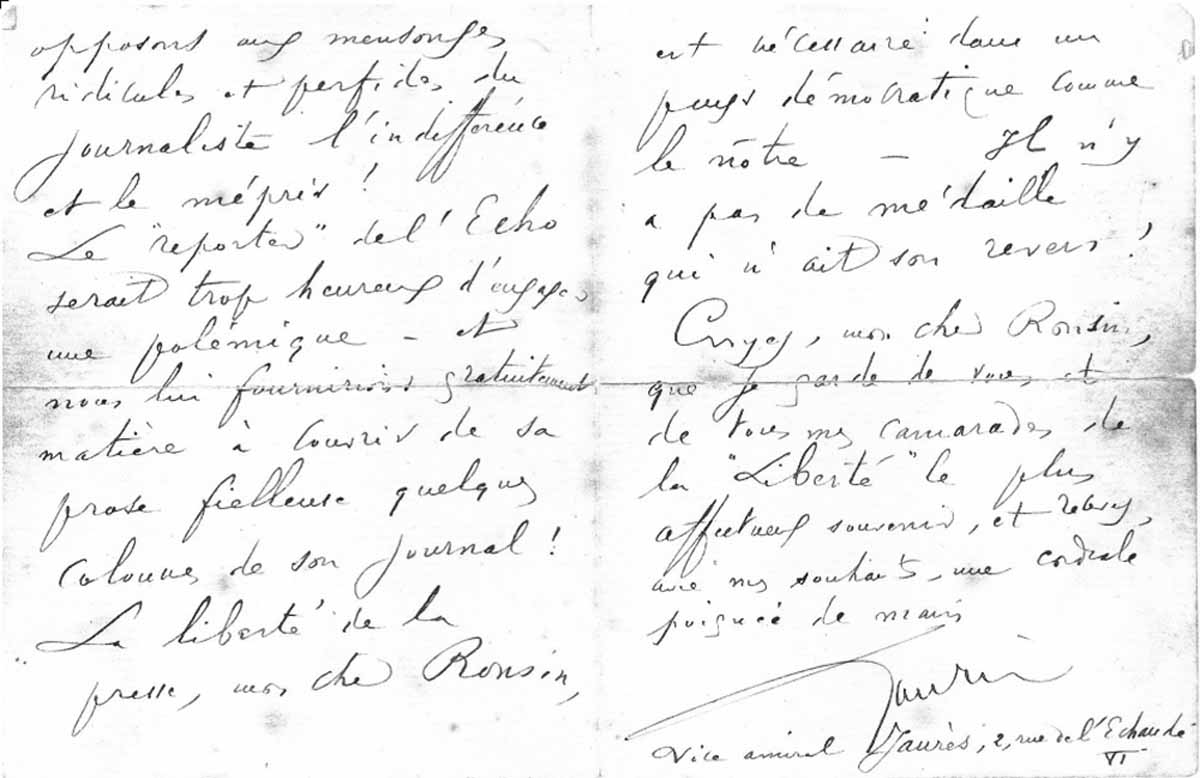 opposons aux mensonges
ridicules et perfides du
journaliste l'indifférence
et le mépris !
Le "reporter" de l'Echo
serait trop heureux d'engager
une polémique - et
nous lui fournirions gratuitement
matière à couvrir de sa
prose fielleuse quelques
colonnes de son journal !
La liberté de la
presse, mon cher Ronsin,
est nécessaire dans un
pays démocratique comme
le nôtre - Il n'y
a pas de médaille
qui n'ait son revers !
Croyez, mon cher Ronsin,
que je garde de vous et
de tous mes camarades de
la "Liberté" le plus
affectueux souvenir, et recevez,
avec mes souhaits, une cordiale
poignée de main
Jaurès
Vice amiral Jaurès, 2, rue de l'Echaudé
VI